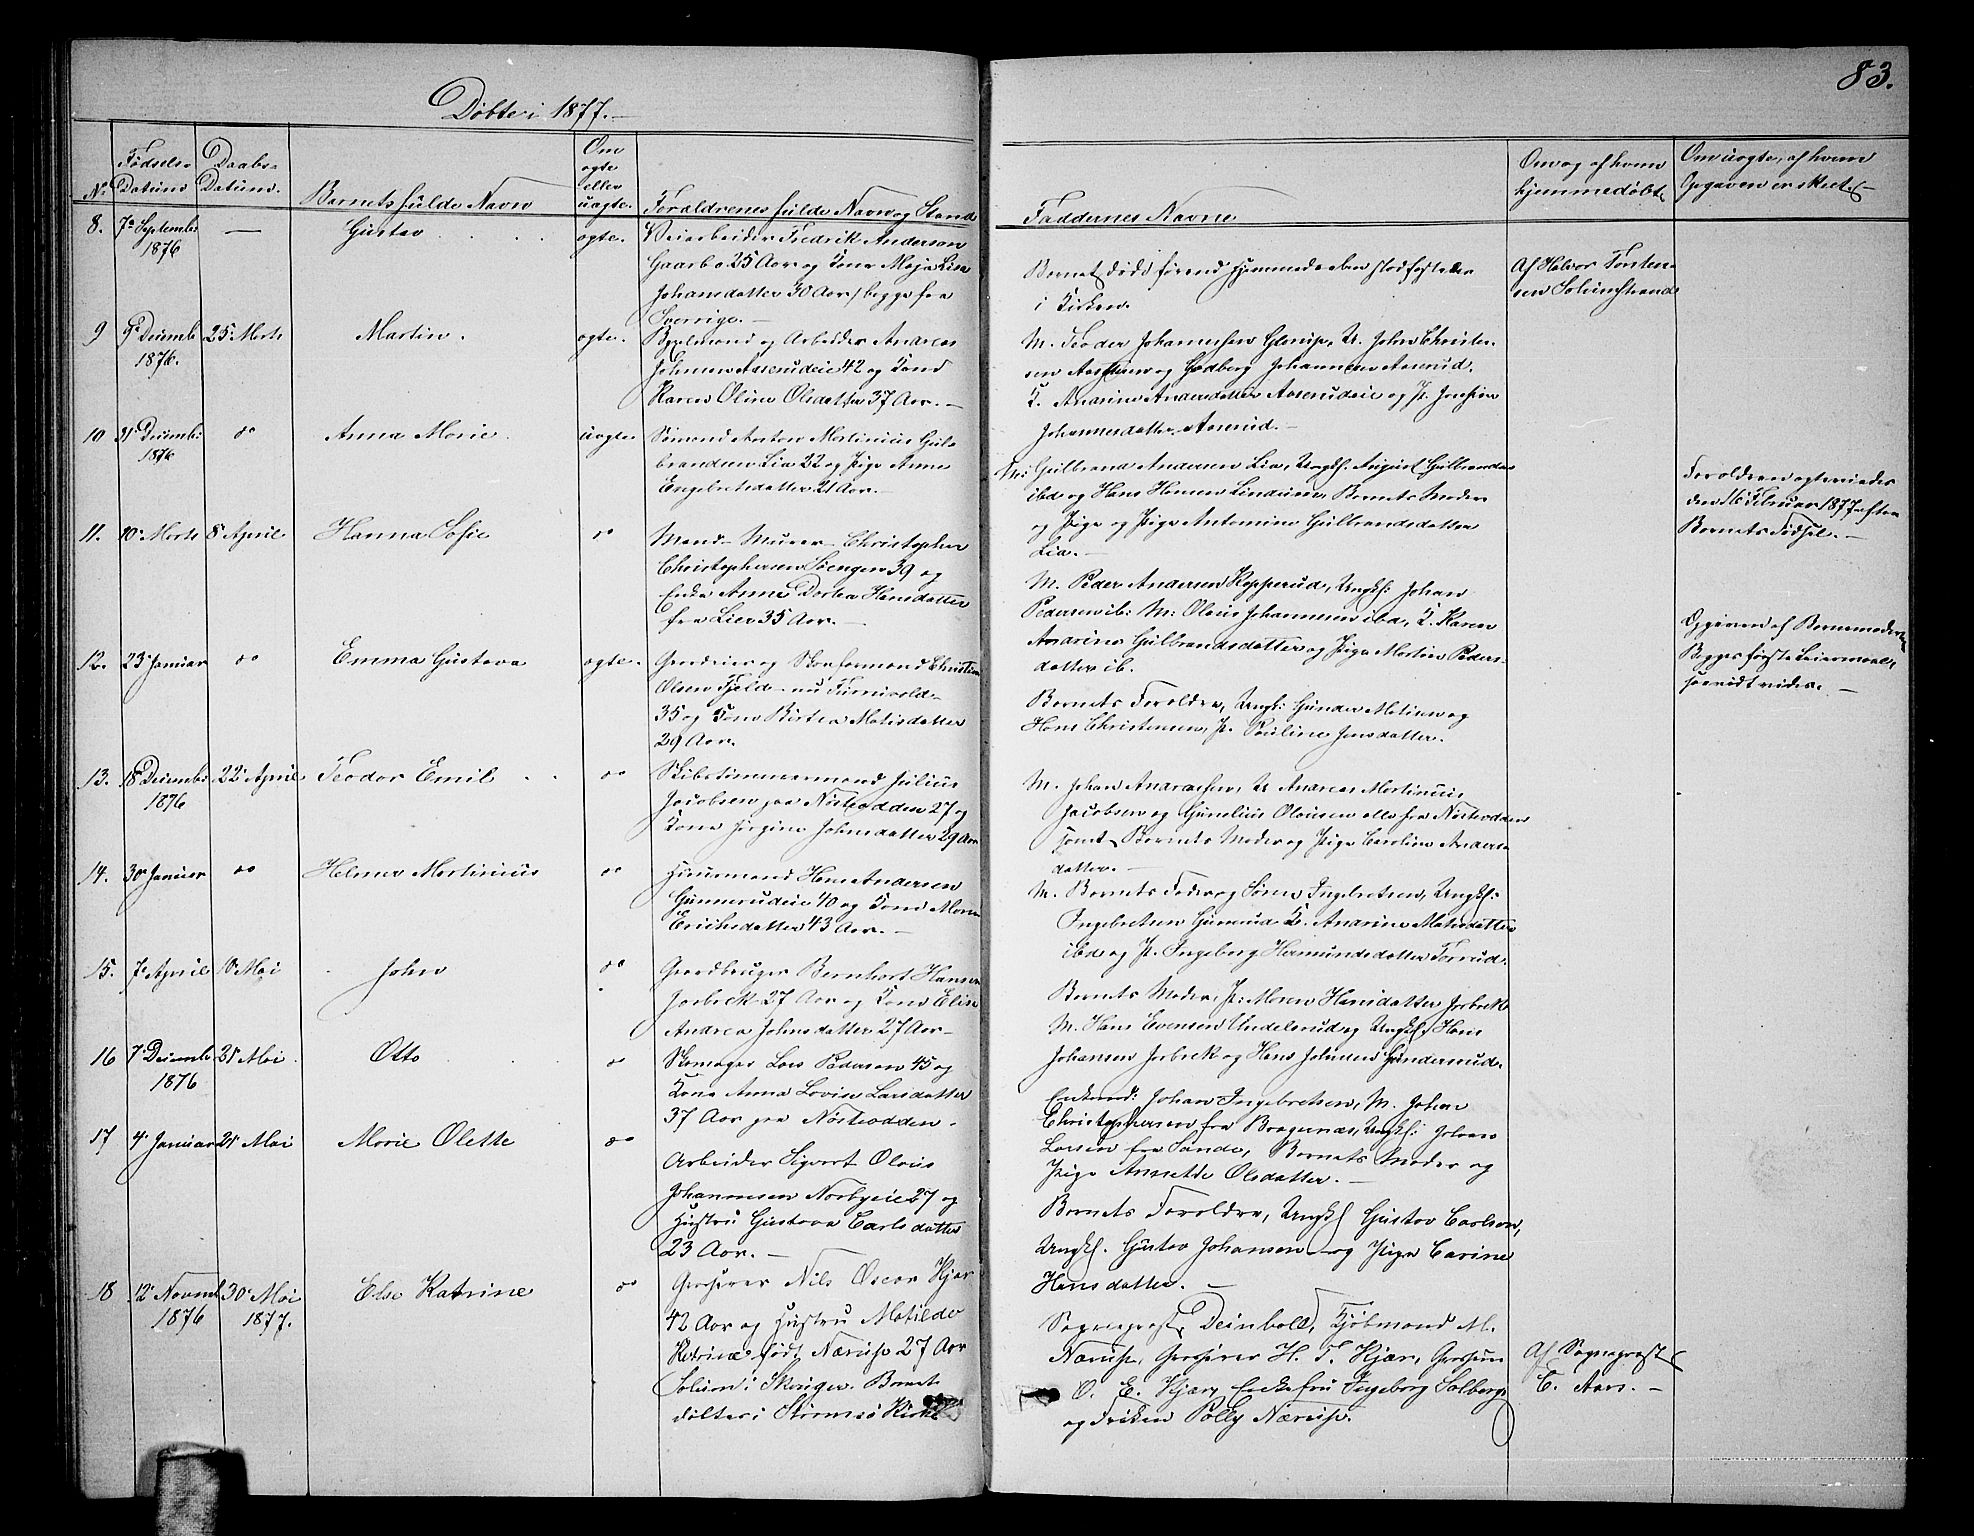 83.
Døbte i 1877.
No
Fødsels-
Datum
Daabs-
Datum.
Barnets fulde Navn
Om
ægte
eller
uægte.
Forældrenes fulde Navn og Stand
Faddernes Navne
Om og af hvem
hjemmedøbt
Om uægte, af hvem
Opgaven er skeet.
8. 7 Septembr — Gustav ægte. Veiarbeider Fredrik Anderson
1876
Gaarbo 25 Aar og Kone Maja Lisa
Johansdatter 30 Aar, begge fra
Sverrige. —
Barnet døde førend Hjemmedaaben stadfæstedes
i Kirken.
Af Halvor Torsten-
sen Solumstrand
9 9 Decemb 25 Marts Martin. ægte.
1876.
Bygselmand og Arbeider Andreas
Johnsen Aaserudeie 42 og Kone
Karen Oline Olsdatter 37 Aar. —
M. Teodor Johannesen Glorup, U. John Christen-
sen Aas og Godberg Johannesen Aaserud.
K. Anarine Andersdatter Aaserudeie og P. Josefine
Johannesdatter Aaserud. —
10 31 Decembr do Anna Marie. uægte.
1876
Sømand Anton Martinius Gul-
brandsen Lia 22 og Pige Anne
Engebretsdatter 21 Aar. —
M: Gulbrand Andersen Lia, Ungk. August Gulbrandsen
ibd og Hans Hansen Lindum, Barnets Moder
og Pige og Pige Antomine Gulbrandsdatter
Lia. —
Forældrene ægteviedes
den 16 Februar 1877 efter
Barnets Fødsel. —
11. 10 Marts 8 April Hanna Sofie do
Mand Murer Christopher
Christophersen Svengen 39 og
Enke Anne Dortea Hansdatter
fra Lier 35 Aar. —
M. Peder Andersen Kopperud, Ungk: Johan
Pedersen ib: M: Olaus Johannesen ibd, K. Karen
Anarine Gulbrandsdatter og Pige Martine Peders-
datter ib.
Opgiven af Barnemoderen
Begges første Leiermaal,
saavidt vides. —
12. 23 Januar do Emma Gustava ægte.
Gaardeier og Skomfarmand Christian
Olsen Fjeld nu
35 og Kone Bertea Matisdatter
29 Aar.
Barnets Forældre, Ungk: Gunder Matisen og
Hans Christensen, P. Pauline Jensdatter.
13. 18 Decembr 22 April Teodor Emil do
1876
Skibstømmermand Julius
Jacobsen paa Nøsteodden 27 og
Kone Jørgine Johnsdatter 29 Aar
M. Johan Anarasen, U Anareas Martinius
Jacobsen og Gunelius Olausen alle fra Nøsteodden
samt Barnets Moder og Pige Caroline Anders-
datter. —
14. 30 Januar do Helmer Martinius do
Huusmand Hans Andersen
Gunnerudeie 40 og Kone Maren
Erichsdatter 43 Aar. —
M. Barnets Fader og Søren Ingebretsen, Ungk:
Ingebretsen Gunerud K. Anarine Matisdatter
ibd og P. Ingeborg Hermundsdatter Forrud.
15. 7 April 10 Mai John do
Gaardbruger Bernhart Hansen
Jarbek 27 Aar og Kone Elise
Andrea Johnsdatter 27 Aar
Barnets Moder, P: Maren Hansdatter Jarbek
M. Hans Evensen Undelsrud og Ungk: Hans
Johansen Jarbek og Hans Johnsen Gundersrud.
16 7 Decemb 21 Mai Otto do
1876
Skomager Lars Pedersen 45 og
Kone Anna Lovise Larsdatter
37 Aar paa Nøsteodden.
Enkemd: Johan Ingebretsen, M. Johan
Christophersen fra Bragernæs, Ungk: Johan
Larsen fra Sande, Barnets Moder og
Pige Annette Olsdatter. —
17 4 Januar 21 Mai Marie Olette do
Arbeider Sigvart Olaus
Johannesen Norbyeie 27 og
Hustru Gustava Carlsdatter
23 Aar. —
Barnets Forældre, Ungk Gustav Carlson,
Ungk. Gustav Johansen og Pige Carine
Hansdatter. —
18 12 Novmb 30 Mai Else Katrine do
1876 1877.
Grosserer Nils Oscar Kjær
42 Aar og Hustru Matilde
Katrine født Nærup 27 Aar
Solum i Skouger. Barnet
døbtes i Strømsø Kirke
Sogneprest Deinboll, Kjøbmand M.
Nærup, Grosserer H. T. Kjær, Grosserer
O. E. Kjær, Enkefru Ingeborg Solberg
og Frøken Polly Nærup.
Af Sogneprest
C. Aars. —